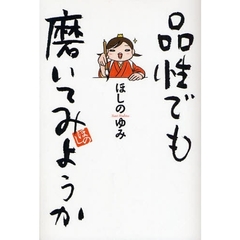 品性でも
磨いてみようか
ほしのゆみ